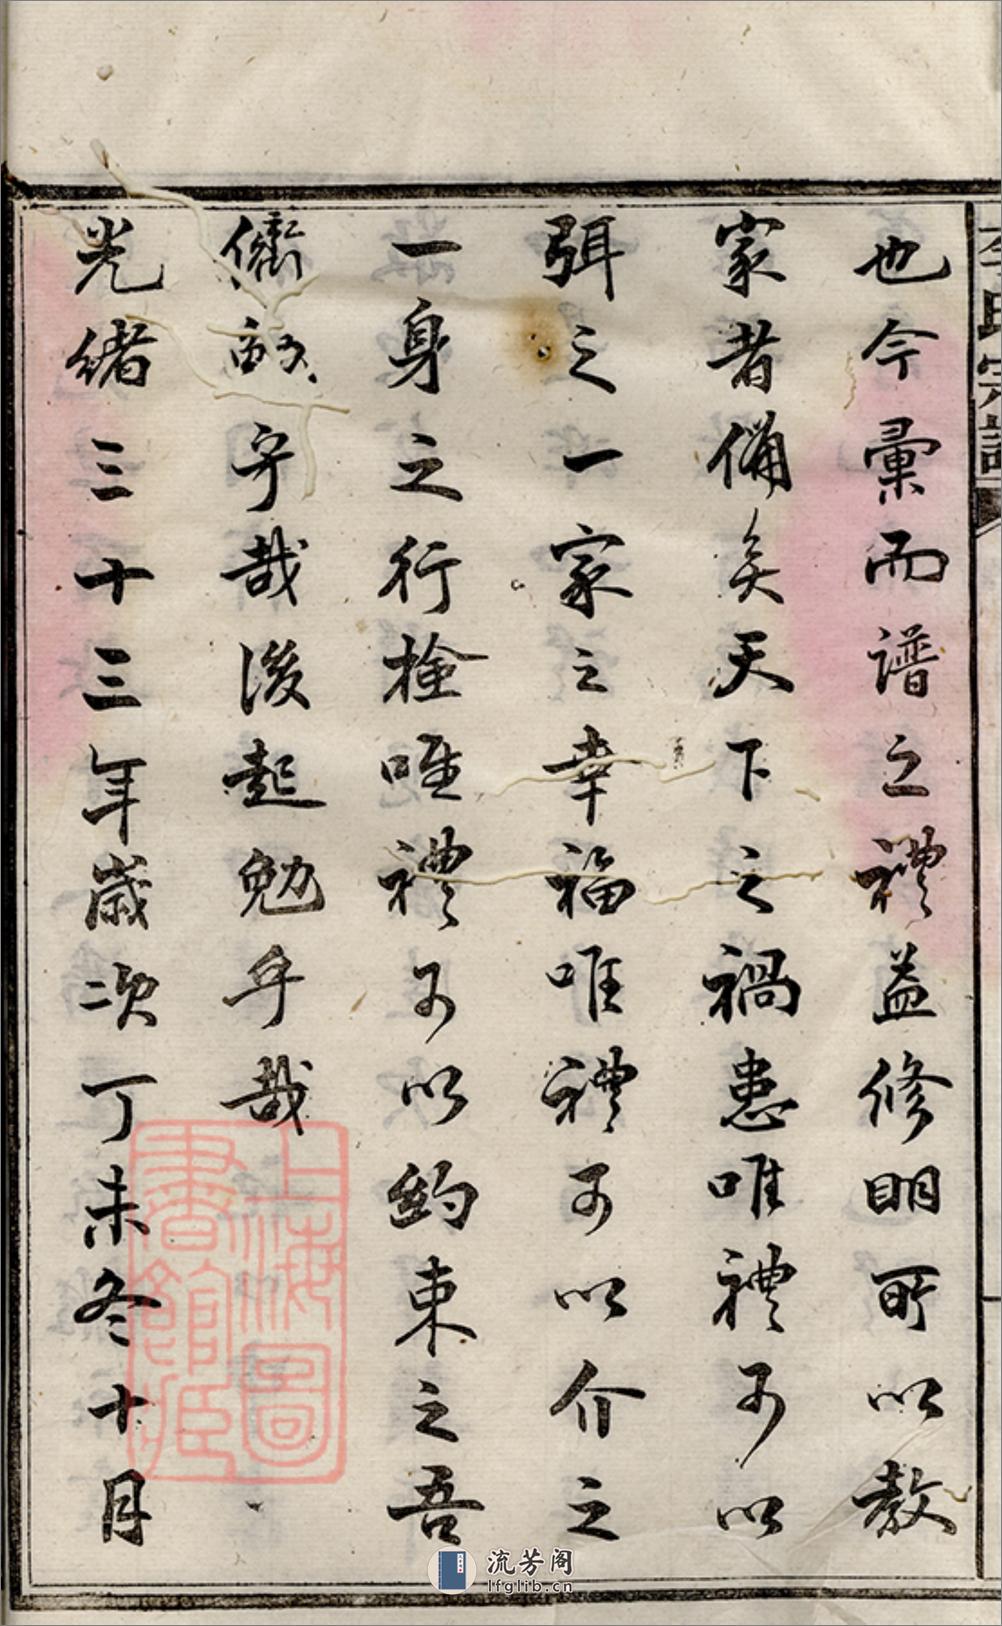 李氏宗譜
也今彙而譜之禮益修明所以教
家者備矣天下之禍患唯禮可以
弭之一家之幸福唯禮可以介之
一身之行檢唯禮可以約束之吾
儕敬守哉後起勉乎哉
光緒三十三年歲次丁未冬十月
上海圖書館藏
流芳阁
lfglib.cn